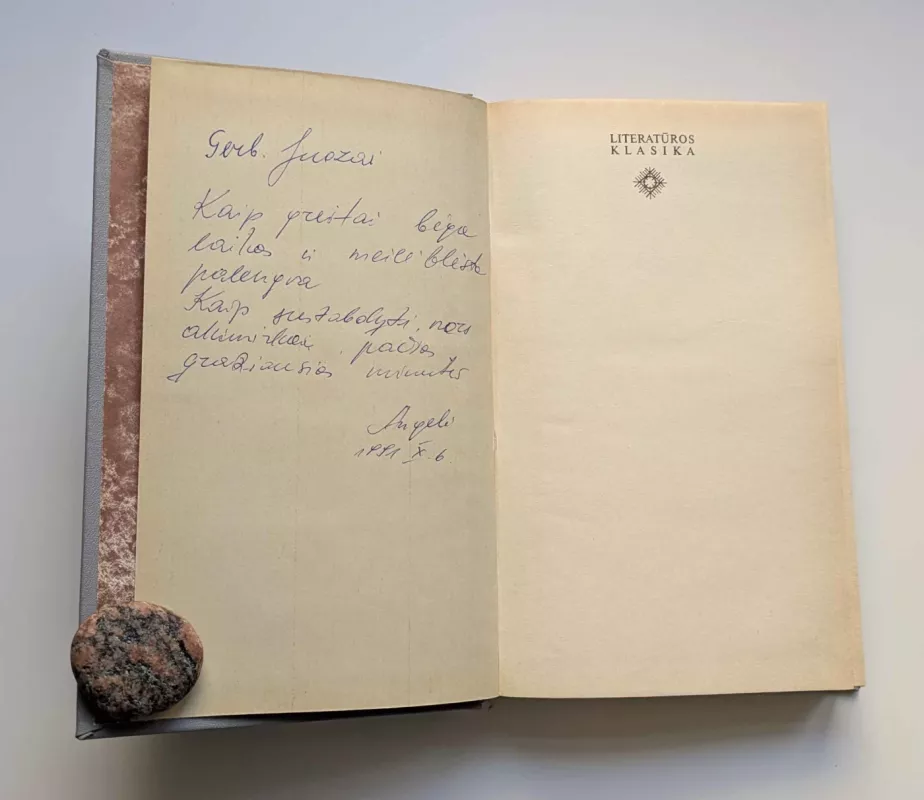 Gerb. Juozai
Kaip greitai bėga
laikas ir meilė blėsta
palengva
Kaip sustabdyti, nors
akimirkai, pačias
gražiausias minutes
Angelė
1991 X. 6.
LITERATŪROS
KLASIKA